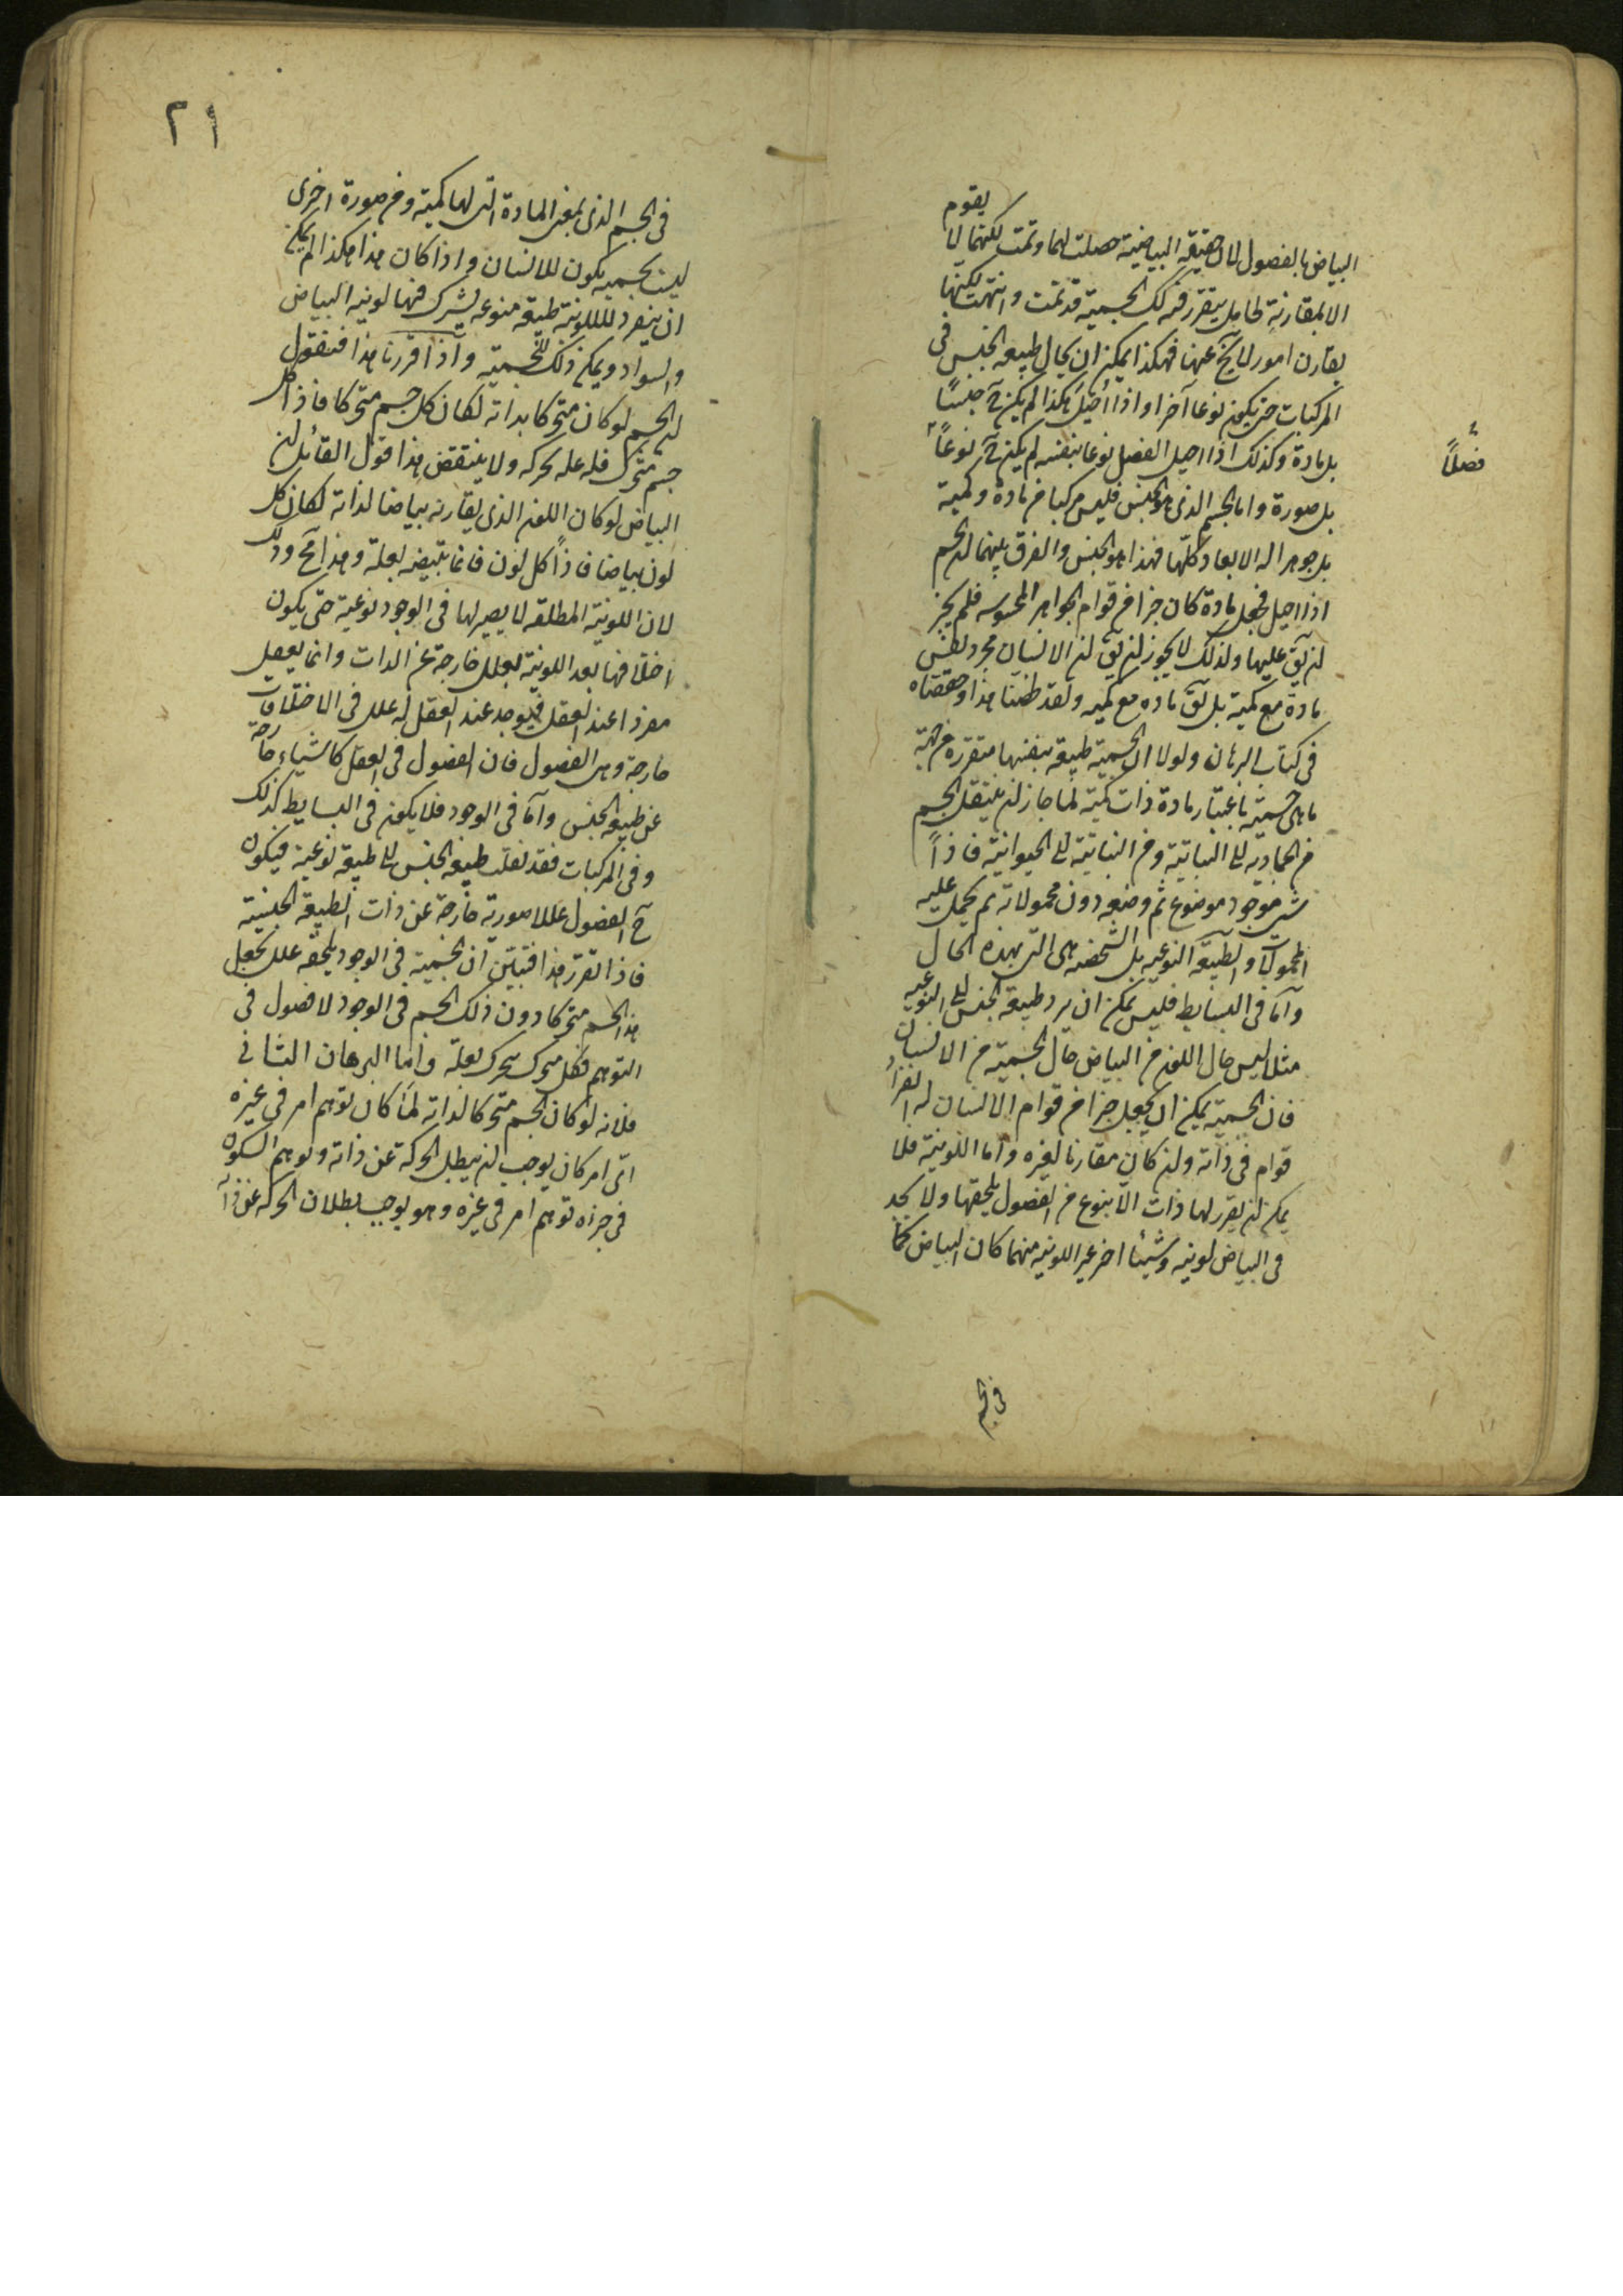 البياض بالفصول لان حقيقة البياضية حصلت لهما وتمت لكنهما لا يقوم
الا بمقارنة لحامل يتقرر فيه لك الجسمية قد تمت وانتهت لكنها
يقارن امور لا يخ عنها فهكذا يمكن ان يحال طبيعة الجنس في
المركبات حتى يكون نوعا آخر او اذا احيل هكذا لم يكن ح جنسًا
بل مادة وكذلك اذا احيل الفصل نوعا بنفسه لم يكن ح نوعًا
فصلًا
بل صورة واما الجسم الذى هو الجنس فليس مركبا من مادة وكمية
بل جوهر اله الابعاد كلها فهذا هو الجنس والفرق بينهما لن الجسم
اذا احيل فجعل مادة كان جزا من قوام الجواهر المحسوسه فلم يجز
لن يق عليها ولذلك لا يجوز لن يق لن الانسان مجرد نفس
مادة مع كمية بل يق ماده مع كميه ولقد طننا هذا وحققناه
في كتاب البرهان ولولا ان الجسمية طبيعة بنفسها متقرره من جهة
ما هي جسمية باعتبار مادة ذات كمية لما جاز لن ينتقل الجسم
من الجماديه الى النباتية ومن النباتية الى الحيوانية فاذاً
شىء موجود موضوع ثم وضعه دون محمولاته ثم يحمل عليه
المحمولات والطبيعة النوعيه بل الشخصه هي التى بهذه الحال
واما في البسايط فليس يمكن ان يرد طبيعة الجنس الى النوعيه
مثلا ليس حال اللون من البياض حال الجسمية من الانسان
فان الجسمية يمكن ان يجعل جزا من قوام الانسان له انفراد
قوام في ذاته ولن كان مقارنا لغيره واما اللونية فلا
يمكن لن يتقرر لها ذات الا بنوع من الفصول يلحقها ولا يجد
في البياض لونيه وشيئا اخر غير اللونيه منهما كان البياض كما
في الجسم
٢١
في الجسم الذى بمعنى المادة التى لها كمية ومن صورة اخرى
ليست بجسميه يكون للانسان واذا كان هذا هكذا لم يمكن
ان ينفرد للونية طبيعة منوعه يشترك فيها لونيه البياض
والسواد ويمكن ذلك للجسمية واذا قررنا هذا فنقول
لن الجسم لو كان متحركا بذاته لكان كل جسم متحركا فاذا كل
جسم متحرك فله علة محركه ولا ينتقض هذا قول القائل لن
البياض لو كان اللون الذى يقارنه بياضا لذاته لكان كل
لون بياضا فاذاً كل لون فانما يتبيض بعلة وهذا مح وذلك
لان اللونية المطلقه لا يصير لها في الوجود نوعية حتى يكون
اختلافها بعد اللونية لعلل خارجة عن الذات وانما يعقل
مفردا عند العقل فيوجد عند العقل له علل في الاختلاف
خارجة وهى الفصول فان الفصول في العقل كاشياء خارجة
عن طبيعة الجنس واما في الوجود فلا يكون في البسايط كذلك
وفي المركبات فقد نقلت طبيعة الجنس الى طبيعة نوعية فيكون
ح الفصول عللا صورية خارجة عن ذات الطبيعة الجنسية
فاذا تقرر هذا فتبين ان الجسمية في الوجود يلحقه علل يجعل
هذا الجسم متحركا دون ذلك الجسم في الوجود لا فصول في
التوهم فكل متحرك يتحرك بعلة واما البرهان الثاني
فلانه لو كان الجسم متحركا لذاته لما كان توهم امر في غيره
اى امر كان يوجب لن يبطل الحركة عن ذاته وتوهم السكون
في جزاه توهم امر في غيره وهو يوجب بطلان الحركه عن ذاته